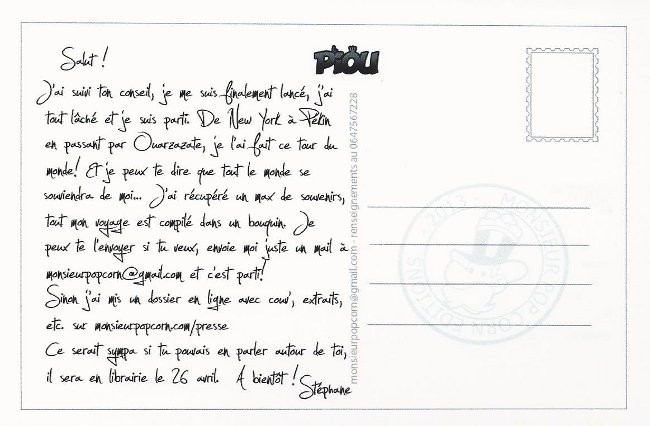 Salut !
PIOU
J'ai suivi ton conseil, je me suis finalement lancé, j'ai
tout lâché et je suis parti. De New York à Pékin
en passant par Ouarzazate, je l'ai fait ce tour du
monde! Et je peux te dire que tout le monde se
souviendra de moi... J'ai récupéré un max de souvenirs,
tout mon voyage est compilé dans un bouquin. Je
peux te l'envoyer si tu veux, envoie moi juste un mail à
monsieurpopcorn@gmail.com et c'est parti!
Sinon j'ai mis un dossier en ligne avec couv', extraits,
etc. sur monsieurpopcorn.com/presse
Ce serait sympa si tu pouvais en parler autour de toi,
il sera en librairie le 26 avril. A bientôt !
Stéphane
monsieurpopcorn@gmail.com - renseignements au 0647567228
2013 MONSIEUR POP CORN EDITIONS